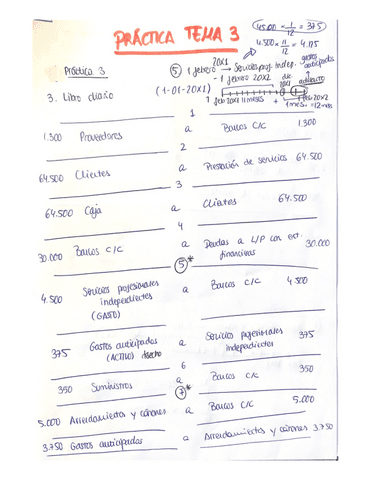 PRÁCTICA TEMA 3
4.500 x 1/12 = 375
4.500 x 11/12 = 4.125
Práctica 3
⑤ 1 febrero 20X1 → Servicios prof. indep.
gastos anticipados
- 1 febrero 20X2
3. Libro diario (1-01-20X1)
1 feb 20X1 11 meses + 1 mes = 12 meses
1
1.300 Proveedores a Bancos C/C 1.300
2
64.500 Clientes a Prestación de servicios 64.500
3
64.500 Caja a Clientes 64.500
4
30.000 Bancos C/C a Deudas a L/P con ent. financieras 30.000
⑤*
4.500 Servicios profesionales independientes (GASTO) a Bancos C/C 4.500
375 Gastos anticipados (ACTIVO) derecho a Servicios profesionales independientes 375
6
350 Suministros a Bancos C/C 350
⑦*
5.000 Arrendamientos y cánones a Bancos C/C 5.000
3.750 Gastos anticipados a Arrendamientos y cánones 3.750